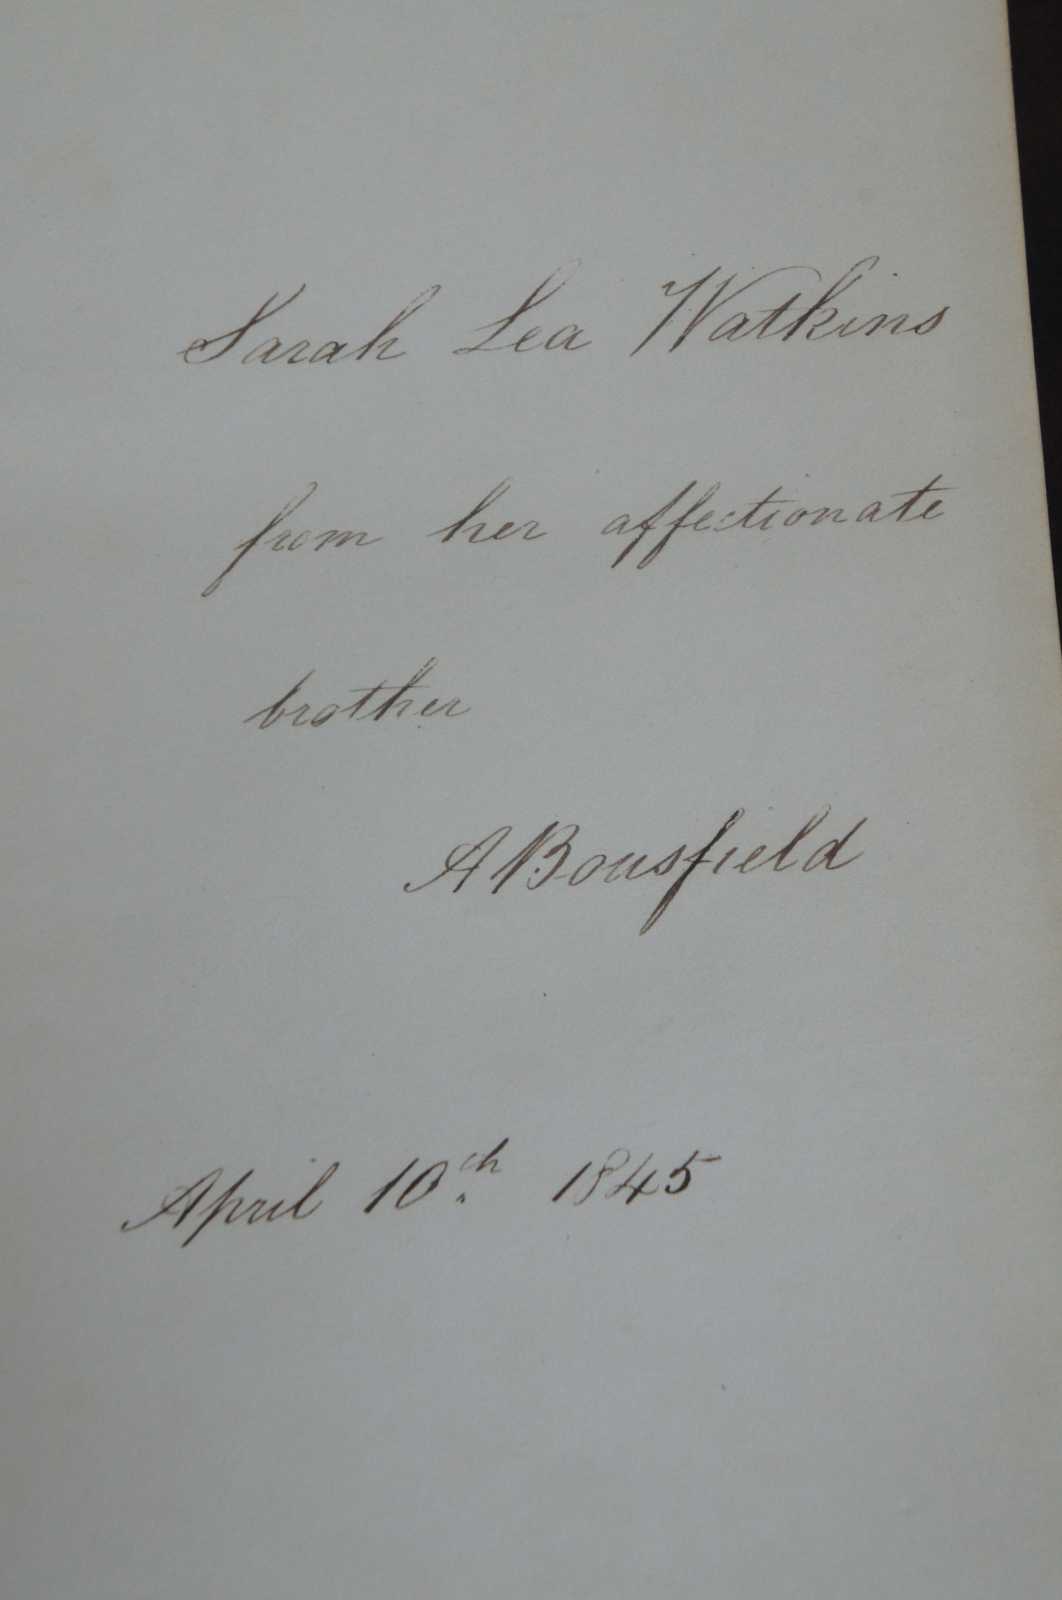 Sarah Lea Watkins
from her affectionate
brother
A Bousfield
April 10th 1845